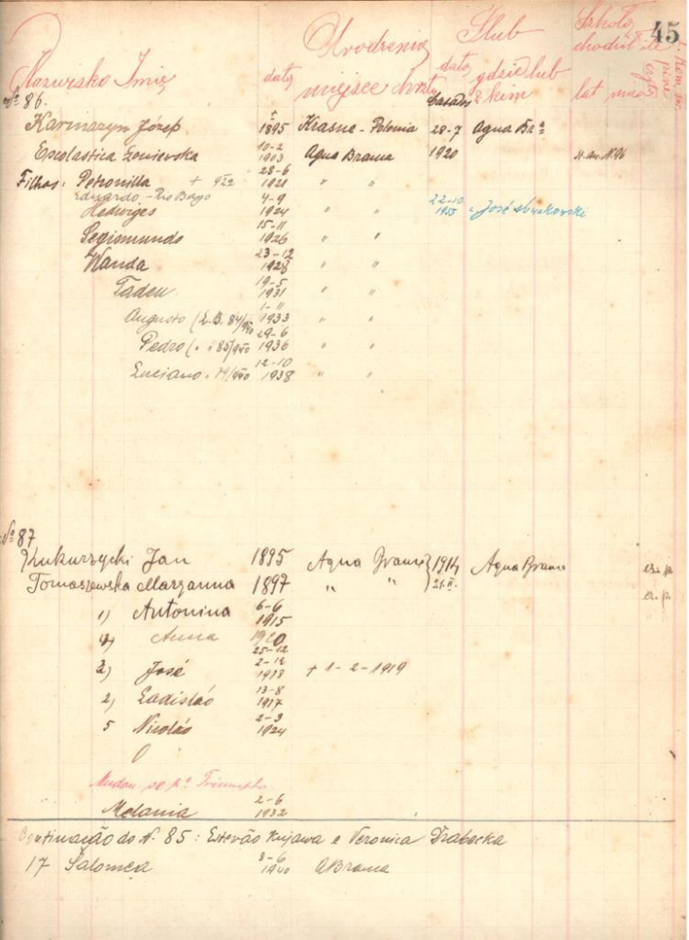 45
Nazwisko Imię data miejsce chrztu data gdzie lub z kim lat
Urodzenia Ślub
Nº 86. casados
Karmazyn Józep 1895 Krasne - Polonia 28-7 Agua Br.ª
Escolastica 10-2 1903 Agua Branca 1920
Filhos: Petronilla + 922 28-6 1921 " "
Eduardo - Rio Bonyo
Hedwiges 4-9 1924 " " 22-10 1955 José
Segismundo 15-11 1926 " "
Wanda 23-12 1928 " "
Tadeu 19-5 1931 " "
Augusto (L.B. 84/940 1-11 1933 " "
Pedro (" " 85/940 29-6 1936 " "
Luciano " 12-10 1938 " "
Nº 87
Kukurzycki Jan 1895 Agua Branca 1914 Agua Branca
Tomaszewska Marzanna 1897 " " 21.II.
1) Antonina 6-6 1915
4) Anna 1920 25-12
3) José 1918 + 1-2-1919
2) Ladisláo 13-8 1917
5 Nicoláo 2-3 1924
Mudou-se p.ª Triumpho
Melania 2-6 1932
Continuação do N. 85: Estevão Kujawa e Veronica Grabacka
17 Salomea 8-6 1940 ABranca